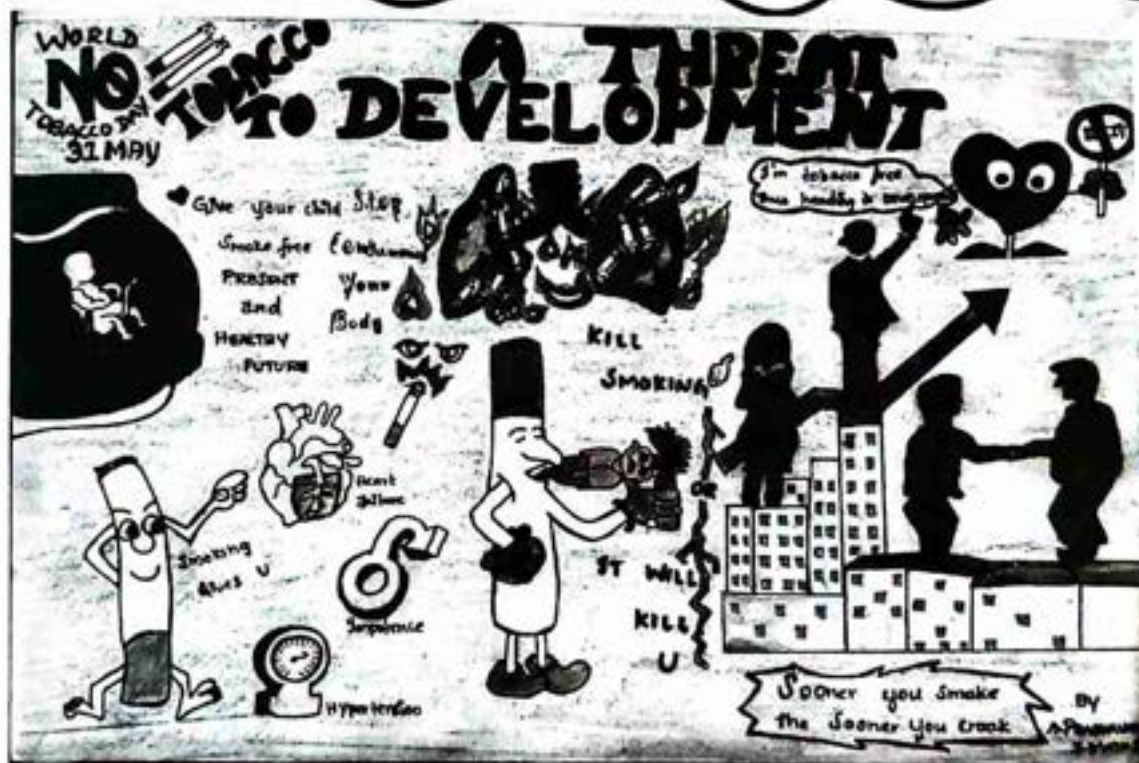 WORLD
NO
TOBACCO DAY
31 MAY
TOBACCO A THREAT
TO DEVELOPMENT
Give your child
Smoke free
PRESENT
and
HEALTHY
FUTURE
Stop
Your
Body
I'm tobacco free
KILL
SMOKING
OR
IT WILL
KILL
U
Smoking
gives U
Heart
failure
Impotence
Hypertension
Sooner you smoke
the Sooner you croak
By